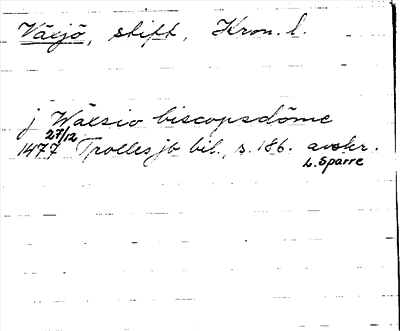 Växjö, stift, Kron. l.
j Wäxsio biscopsdöme
27/12
1477 Trolles jb bil., s. 186. avskr.
L. Sparre